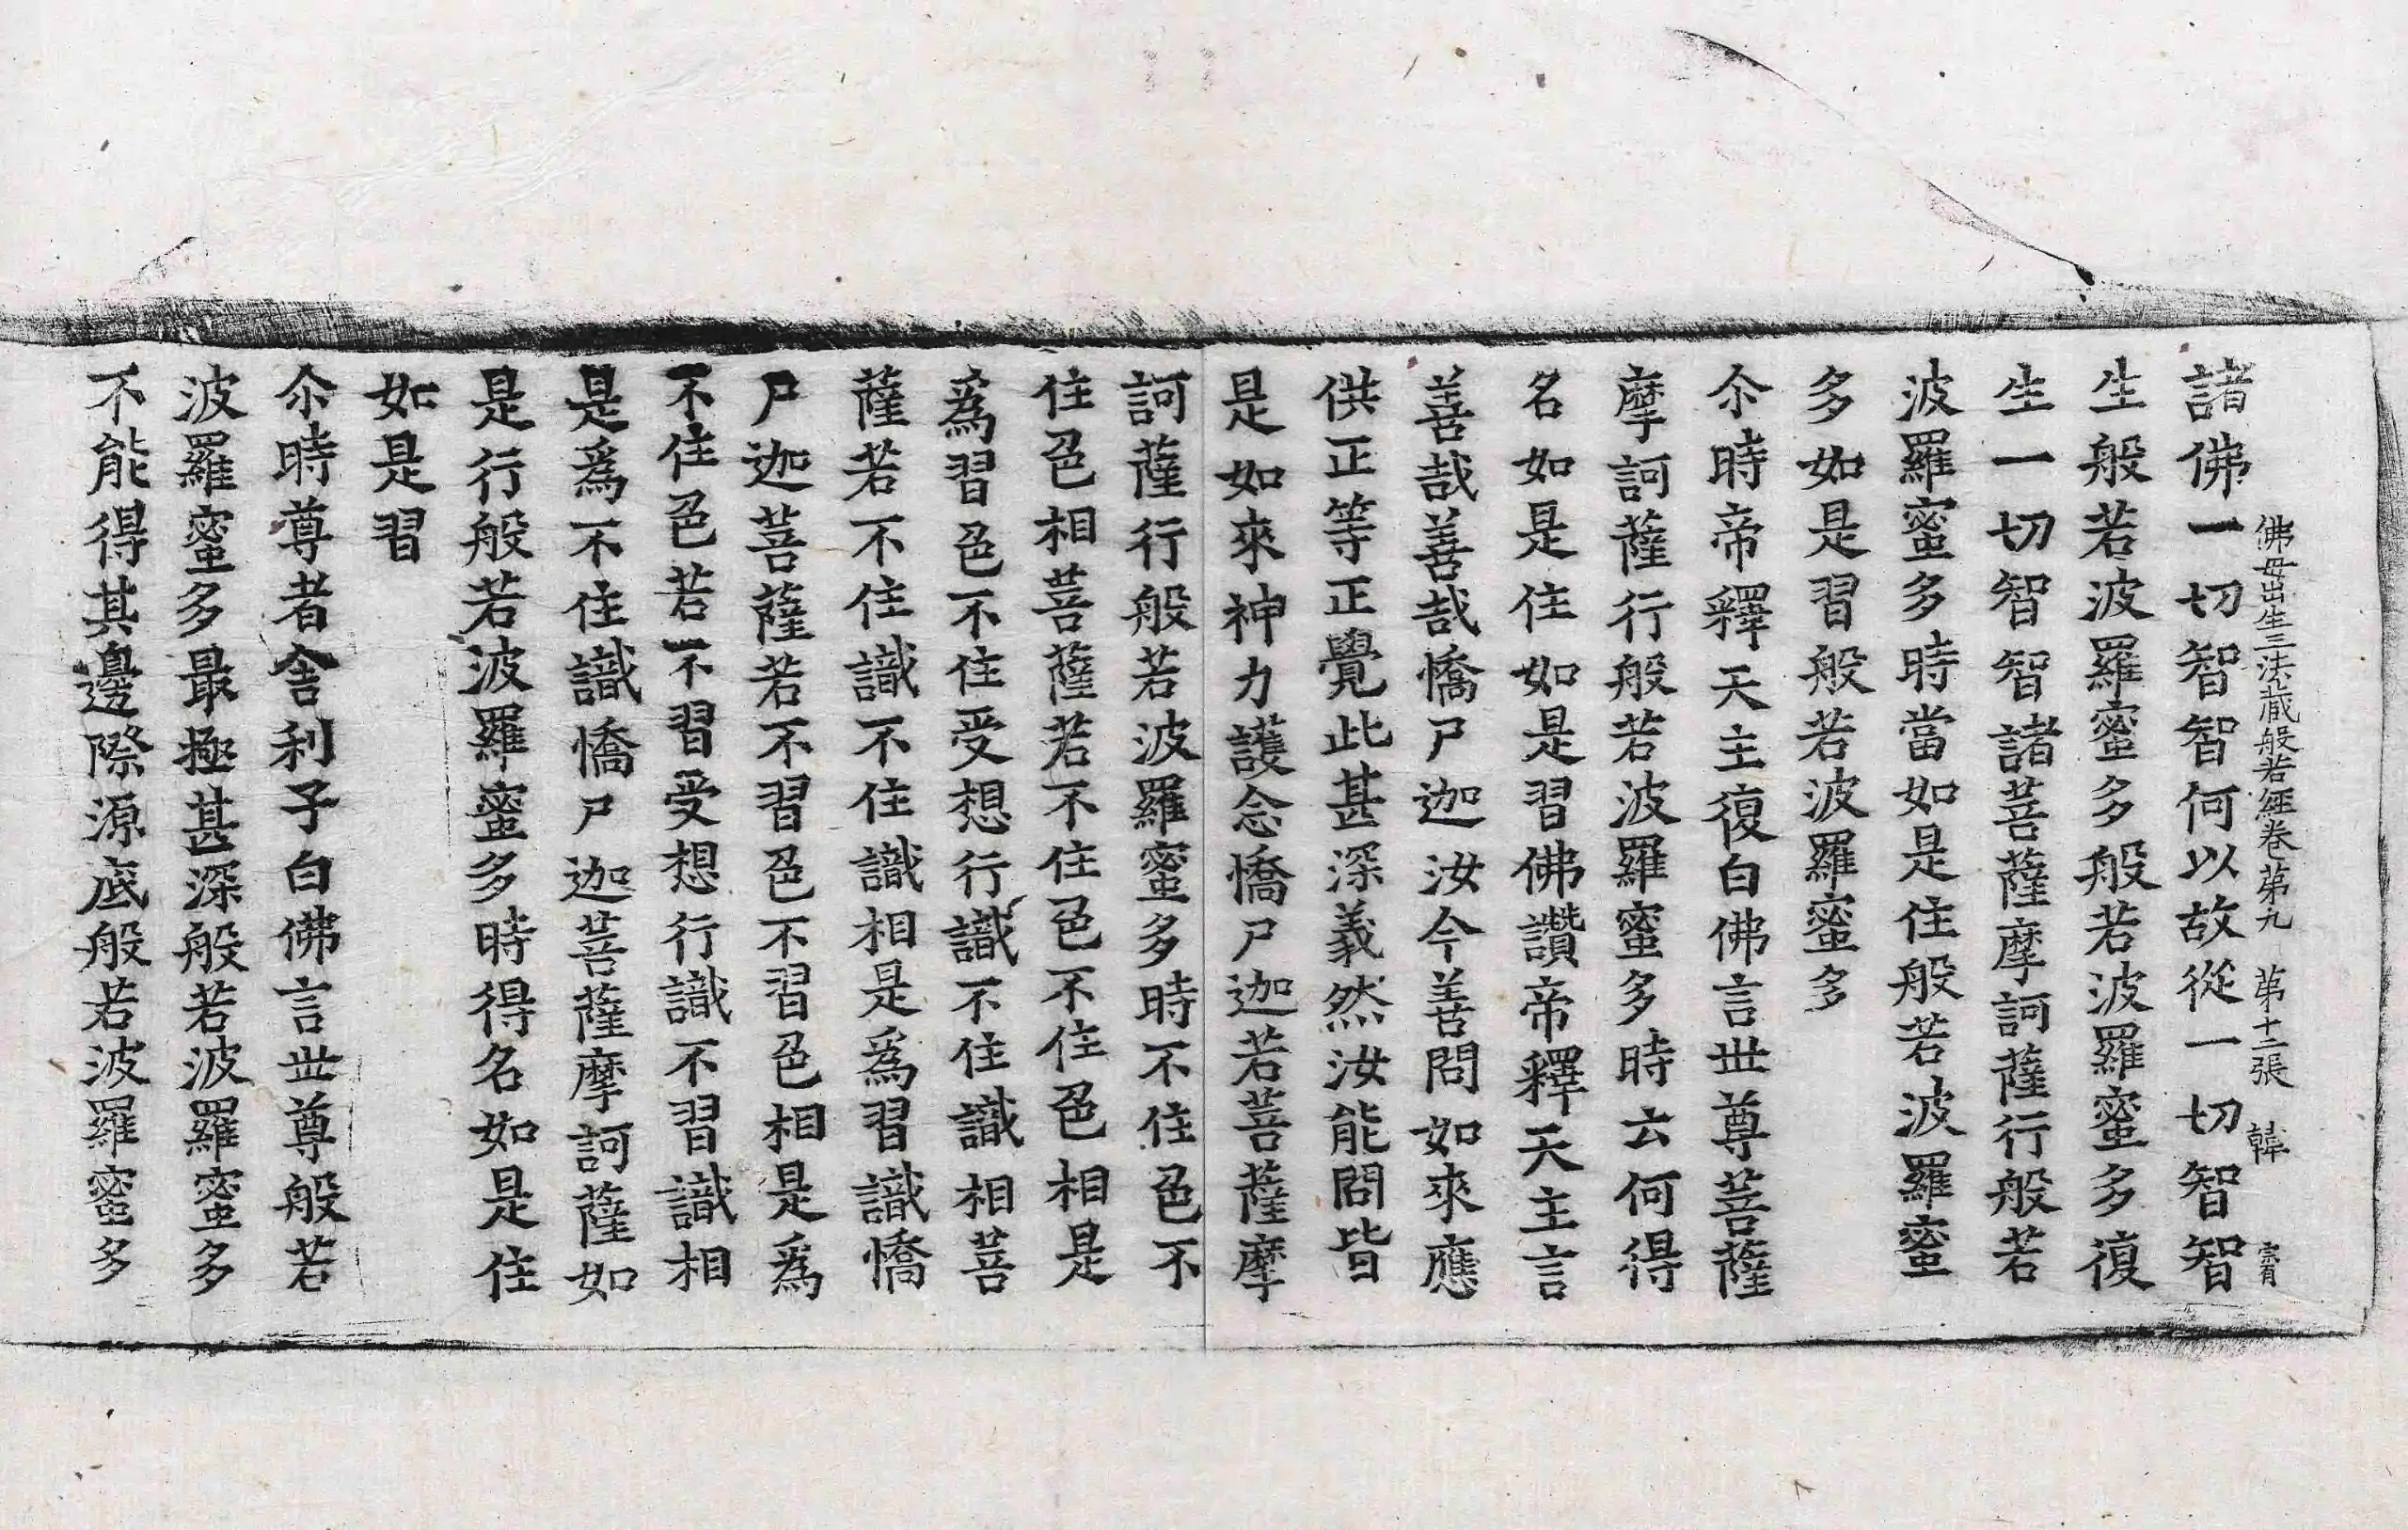 佛母出生三法藏般若經卷苐九 苐十二張 韓 宗有
諸佛一切智智何以故從一切智智
生般若波羅蜜多般若波羅蜜多復
生一切智智諸菩薩摩訶薩行般若
波羅蜜多時當如是住般若波羅蜜
多如是習般若波羅蜜多
尒時帝釋天主復白佛言世尊菩薩
摩訶薩行般若波羅蜜多時云何得
名如是住如是習佛讚帝釋天主言
善哉善哉憍尸迦汝今善問如來應
供正等正覺此甚深義然汝能問皆
是如來神力護念憍尸迦若菩薩摩
訶薩行般若波羅蜜多時不住色不
住色相菩薩若不住色不住色相是
為習色不住受想行識不住識相菩
薩若不住識不住識相是為習識憍
尸迦菩薩若不習色不習色相是為
不住色若不習受想行識不習識相
是為不住識憍尸迦菩薩摩訶薩如
是行般若波羅蜜多時得名如是住
如是習
尒時尊者舍利子白佛言世尊般若
波羅蜜多最極甚深般若波羅蜜多
不能得其邊際源底般若波羅蜜多